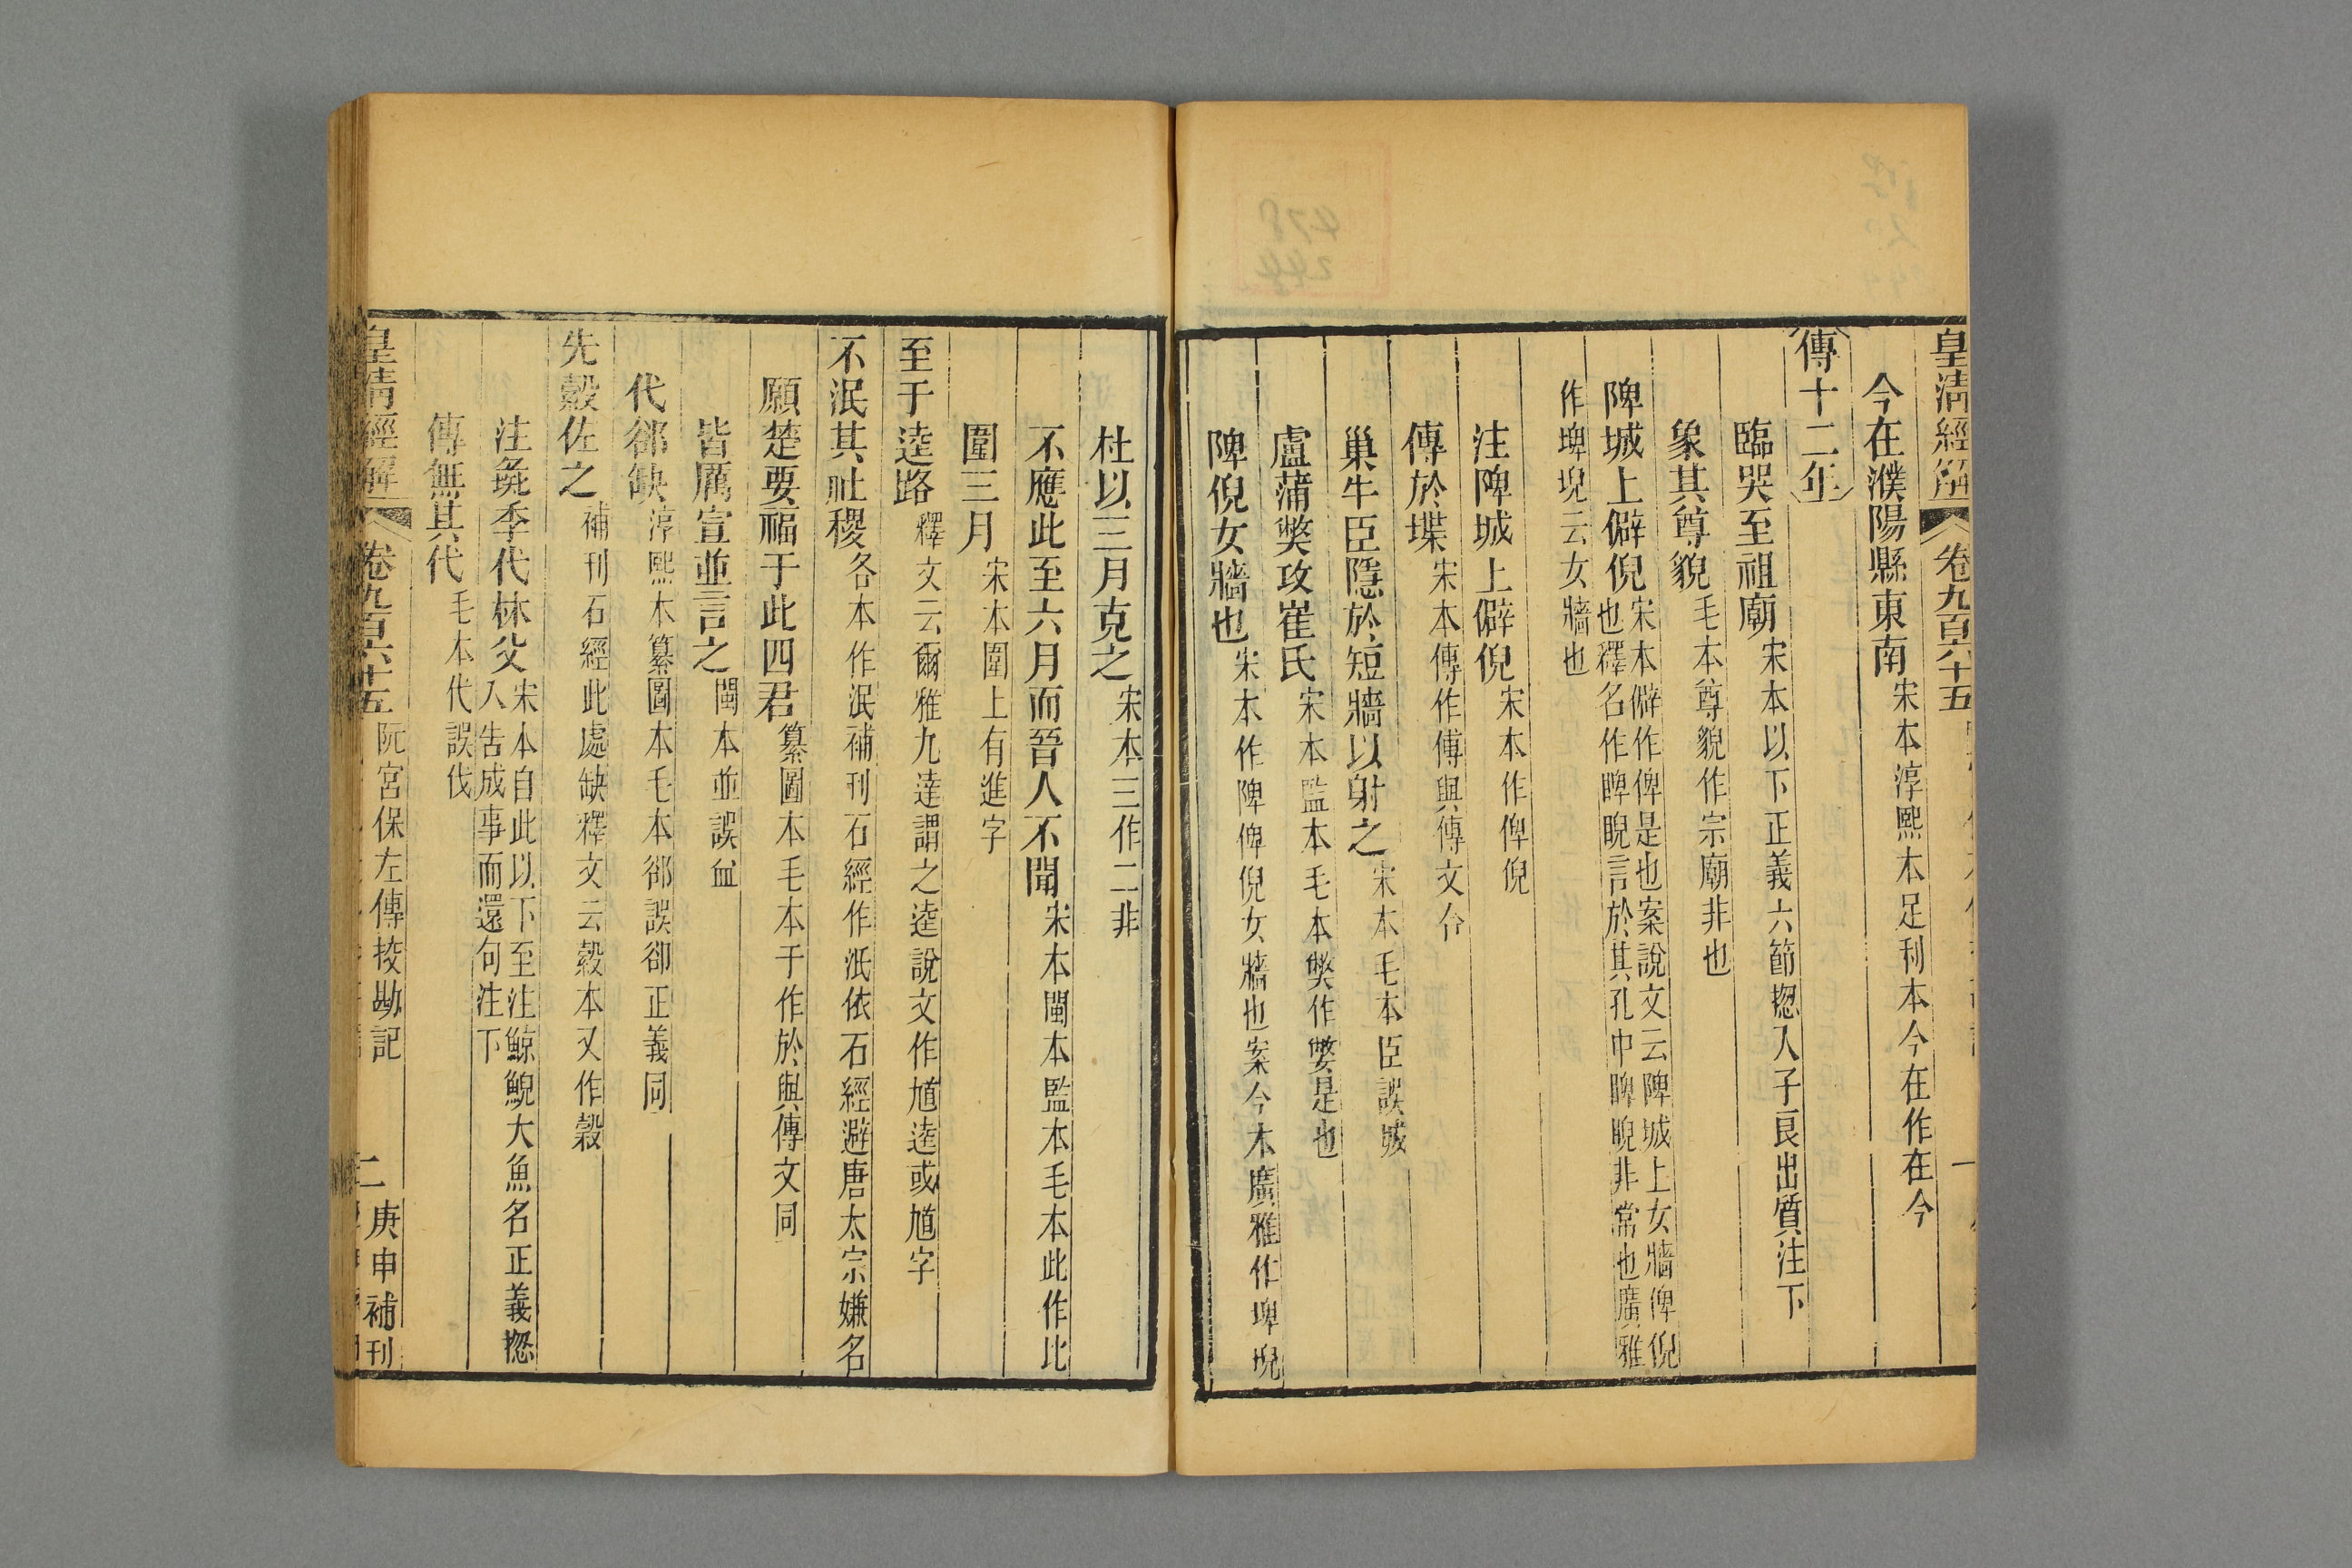 皇清經解 卷九百六十五
今在濮陽縣東南宋本淳熙本足利本今在作在今
傳十二年
臨哭至祖廟宋本以下正義六節揔入子良出質注下
象其尊貌毛本尊貌作宗廟非也
陴城上僻倪宋本僻作俾是也案說文云陴城上女牆俾倪
也釋名作睥睨言於其孔中睥睨非常也廣雅
作埤堄云女牆也
注陴城上僻倪宋本作俾倪
傳於堞宋本傳作傅與傳文合
巢牛臣隱於短牆以射之宋本毛本臣誤城
盧蒲獘攻崔氏宋本監本毛本獘作嫳是也
陴倪女牆也宋本作陴俾倪女牆也案今本廣雅作埤堄
杜以三月克之宋本三作二非
不應此至六月而晉人不聞宋本閩本監本毛本此作比
圍三月宋本圍上有進字
至于逵路釋文云爾雅九達謂之逵說文作馗逵或馗字
不泯其社稷各本作泯補刊石經作泜依石經避唐太宗嫌名
願楚要福于此四君纂圖本毛本于作於與傳文同
皆厲宣並言之閩本並誤血
代郤缺淳熙本纂圖本毛本郤誤卻正義同
先縠佐之補刊石經此處缺釋文云縠本又作榖
注毚季代林父宋本自此以下至注鯨鯢大魚名正義揔
入告成事而還句注下
傳無其代毛本代誤伐
皇清經解 卷九百六十五 阮宮保左傳挍勘記 二 庚申補刊